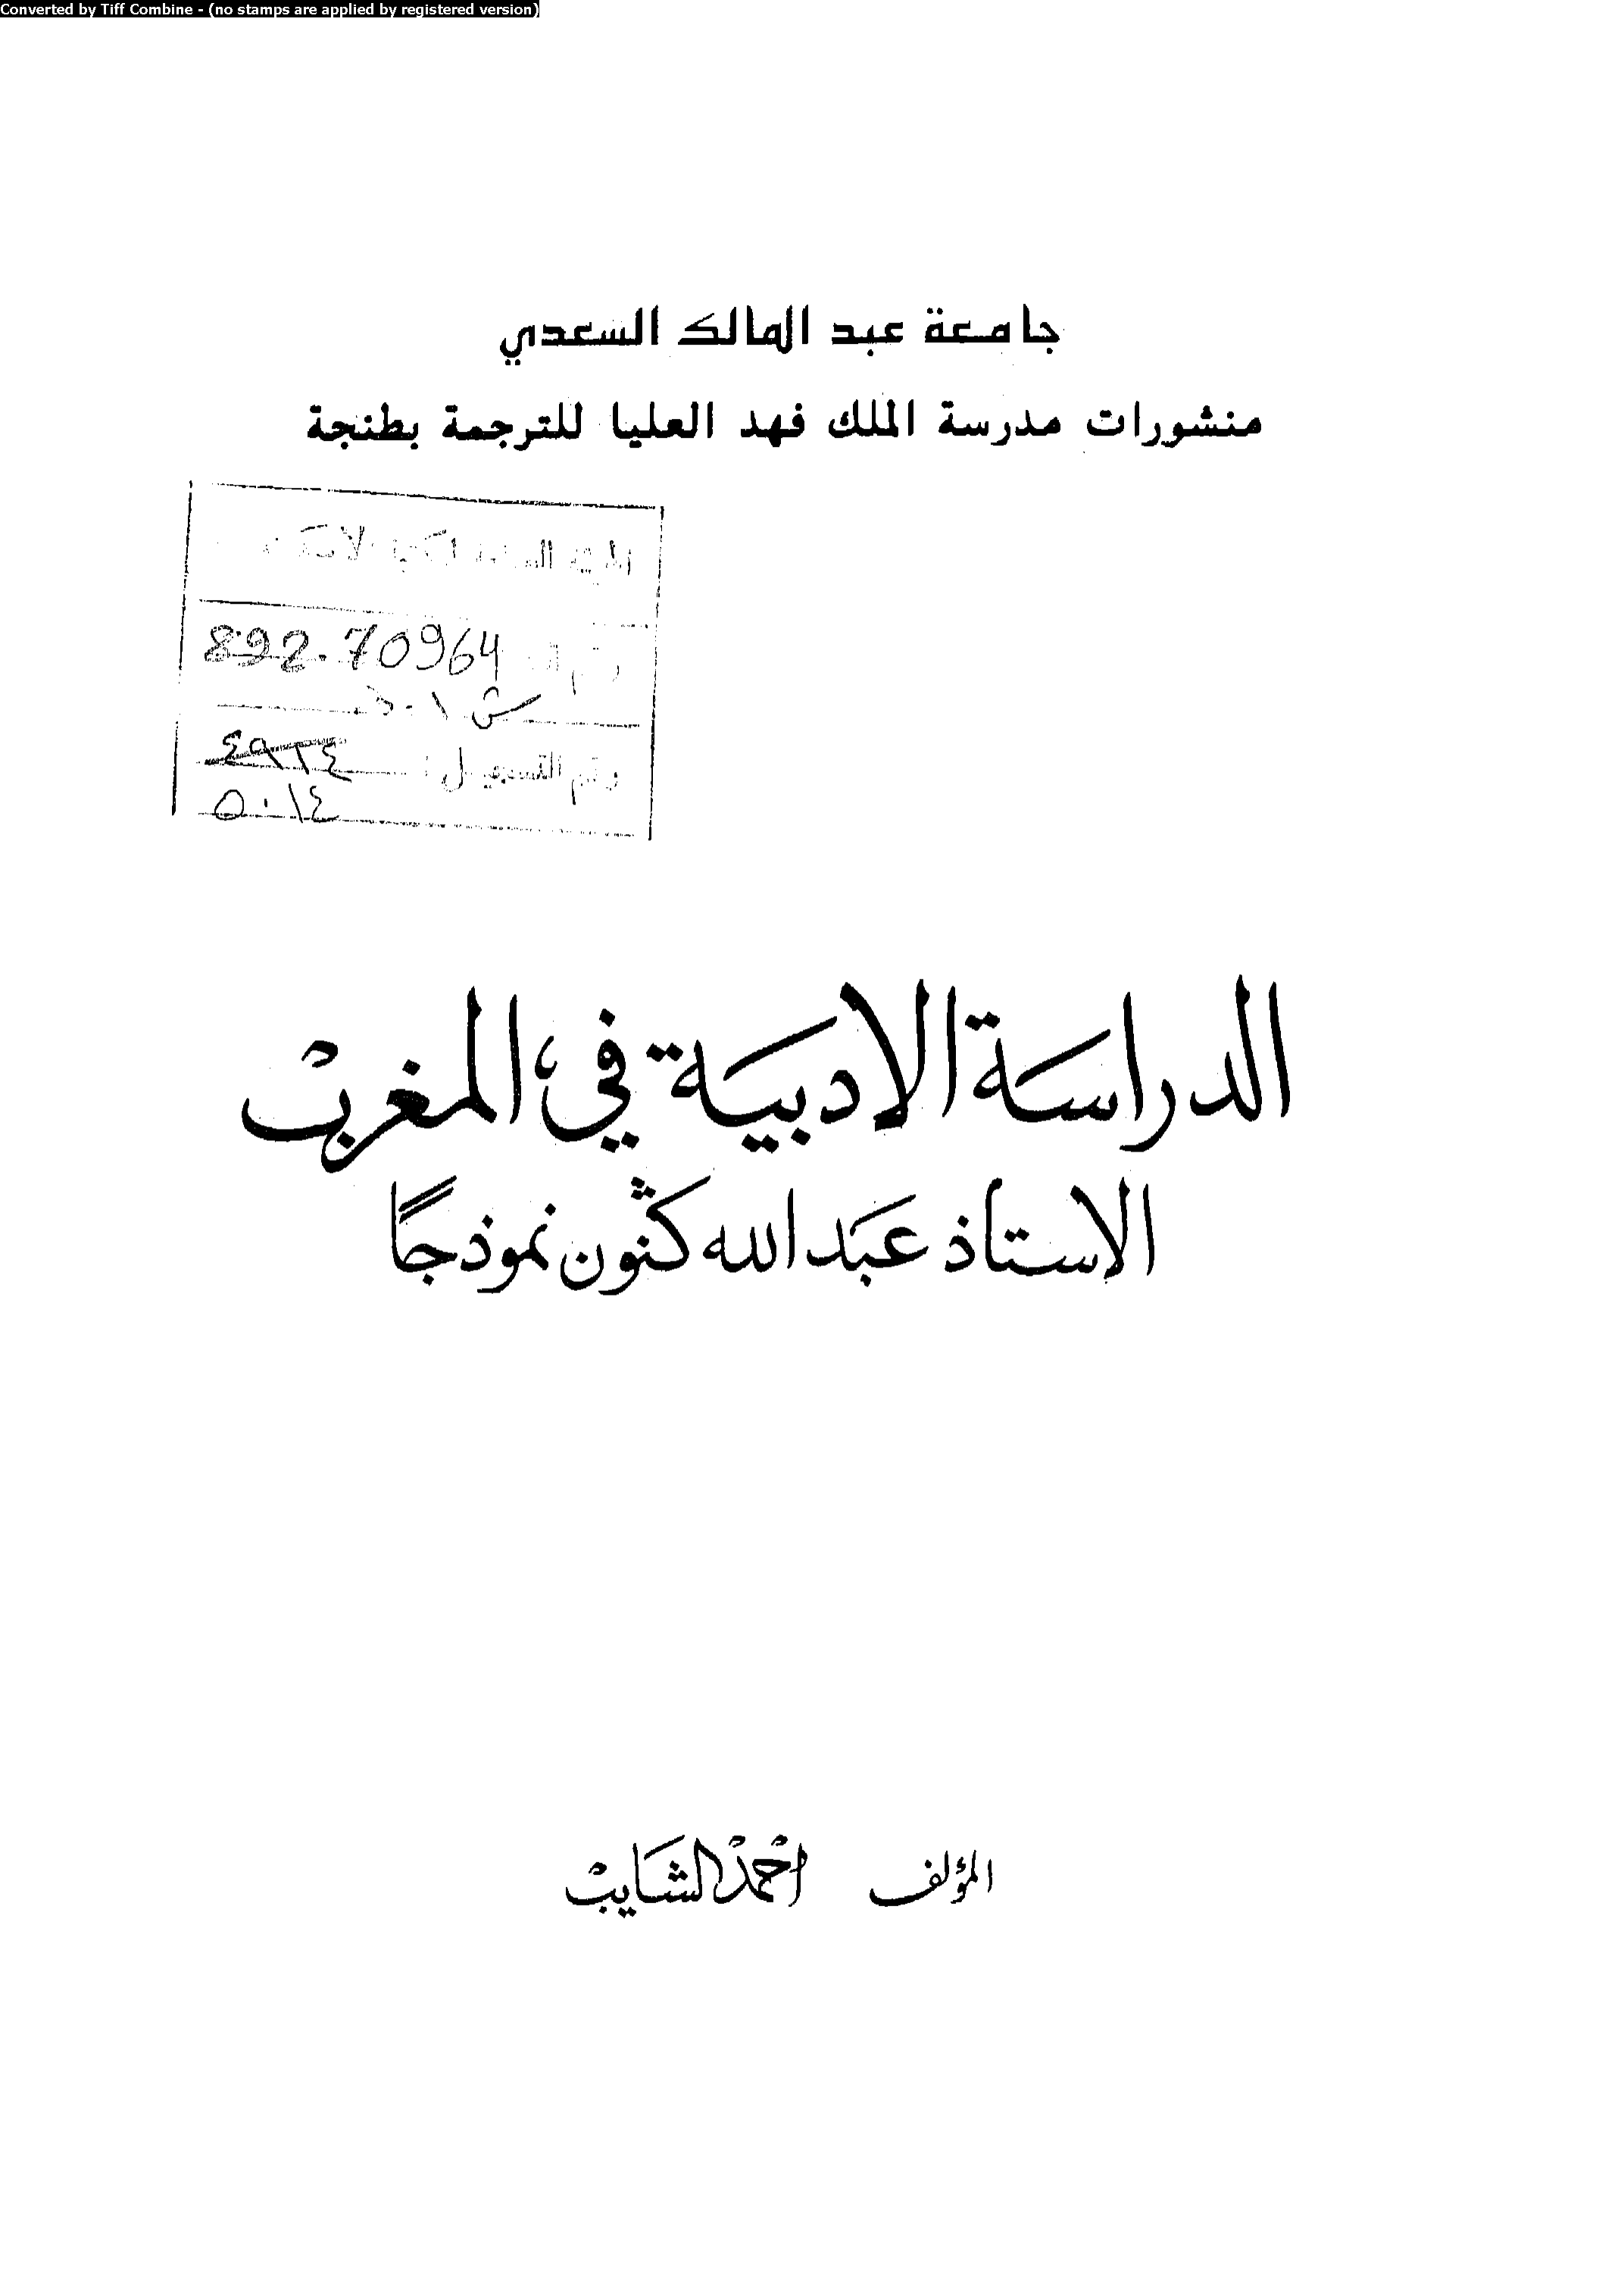 Converted by Tiff Combine - (no stamps are applied by registered version)
جامعة عبد المالك السعدي
منشورات مدرسة الملك فهد العليا للترجمة بطنجة
892.70964
رقم التسجيل :
٤٩٢٤
٥٠١٤
الدراسة الادبية في المغرب
الاستاذ عبد الله كنون نموذجًا
المؤلف احمد الشايب